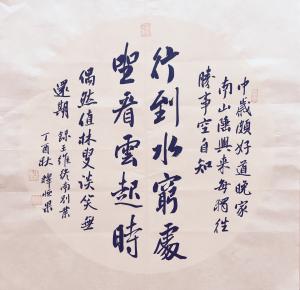 中歲頗好道晚家
南山陲興来每獨往
勝事空自知
行到水窮處
坐看雲起時
偶然值林叟談笑無
還期
錄王維終南别業
丁酉秋